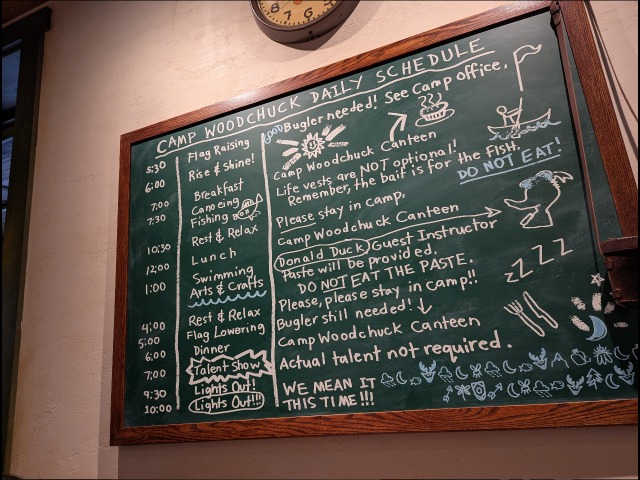 CAMP WOODCHUCK DAILY SCHEDULE
5:30 Flag Raising GOOD Bugler needed! See Camp office.
6:00 Rise & Shine!
7:00 Breakfast Camp Woodchuck Canteen
7:30 Canoeing Life vests are NOT optional!
Fishing Remember, the bait is for the fish.
DO NOT EAT!
10:30 Rest & Relax Please stay in camp.
12:00 Lunch Camp Woodchuck Canteen
1:00 Swimming Donald Duck Guest Instructor
Arts & Crafts Paste will be provided.
DO NOT EAT THE PASTE.
ZZZZ
4:00 Rest & Relax Please, please stay in camp!!
5:00 Flag Lowering Bugler still needed!
6:00 Dinner Camp Woodchuck Canteen
7:00 Talent Show Actual talent not required.
9:30 Lights Out!
10:00 Lights Out!!! WE MEAN IT
THIS TIME!!!